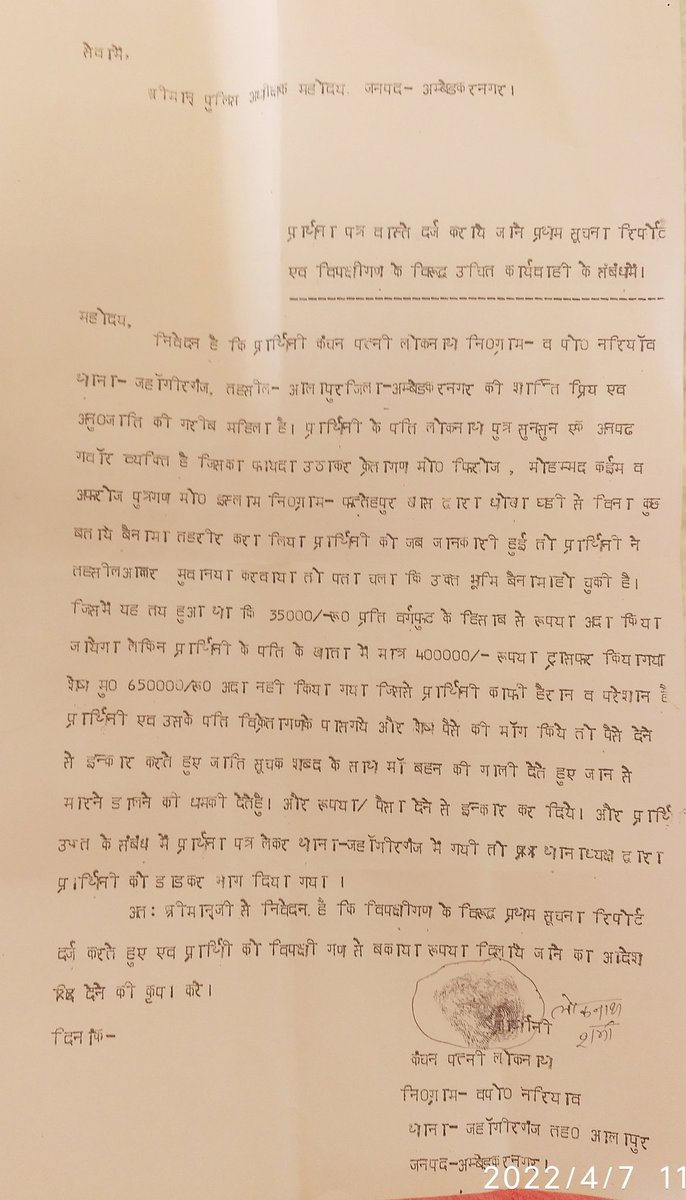 सेवामें,
श्रीमान् पुलिस अधीक्षक महोदय, जनपद- अम्बेडकरनगर।
प्रार्थना पत्र वास्ते दर्ज कराये जाने प्रथम सूचना रिर्पोट
एवं विपक्षीगण के विरूद्ध उचित कार्यवाही के संबंधमें।
महोदय,
निवेदन है कि प्रार्थिनी कंचन पत्नी लोकनाथ नि0ग्राम- व पो0 नरियॉव
थाना- जहॉगीरगंज, तहसील- आलापुरजिला-अम्बेडकरनगर की शान्ति प्रिय एवं
अनु0जाति की गरीब महिला है। प्रार्थिनी के पति लोकनाथ पुत्र सुनसुन एक अनपढ
गवॉर व्यक्ति है जिसका फायदा उठाकर क्रेतागण मो0 फिरोज , मोहम्मद कईम व
अफरोज पुत्रगण मो0 इस्लाम नि0ग्राम- फत्तेहपुर खास द्वारा धोखा धडी से विना कुछ
बताये बैनामा तहरीर करा लिया प्रार्थिनी को जब जानकारी हुई तो प्रार्थिनी ने
मुवानया करवाया तो पता चला कि उक्त भूमि बैनामाहो चुकी है।
जिसमें यह तय हुआ था कि 35000/-रू0 प्रति वर्गफुट के हिसाब से रूपया अदा किया
जायेगा लेकिन प्रार्थिनी के पति के खाता में मात्र 400000/- रूपया ट्रासफर कियागया
शेष मु0 650000/रू0 अदा नही किया गया जिससे प्रार्थिनी काफी हैरान व परेशान है
प्रार्थिनी एवं उसके पति विक्रेतागणके पासगये और शेष पैसे की मॉग किये तो पैसे देने
से इन्कार करते हुए जाति सूचक शब्द के साथ मॉ बहन की गाली देते हुए जान से
मारने डालने की धमकी देतेहै। और रूपया/ पैसा देने से इन्कार कर दिये। और प्रार्थि
उक्त के संबंध में प्रार्थना पत्र लेकर थाना-जहॉगीरगंज में गयी तो थानाध्यक्ष द्वारा
प्रार्थिनी को डाडकर भाग दिया गया ।
अतः श्रीमान्जी से निवेदन है कि विपक्षीगण के विरूद्ध प्रथम सूचना रिर्पोट
दर्ज करते हुए एवं प्रार्थिी को विपक्षी गण से बकाया रूपया दिलाये जाने का आदेश
देने की कृपा करें।
दिनांक-
प्रार्थिनी
लोकनाथ
कंचन पत्नी लोकनाथ
नि0ग्राम- वपो0 नरियाव
थाना- जहॉगीरगंज तह0 आलापुर
जनपद-अम्बेडकरनगर।
2022/4/7 11